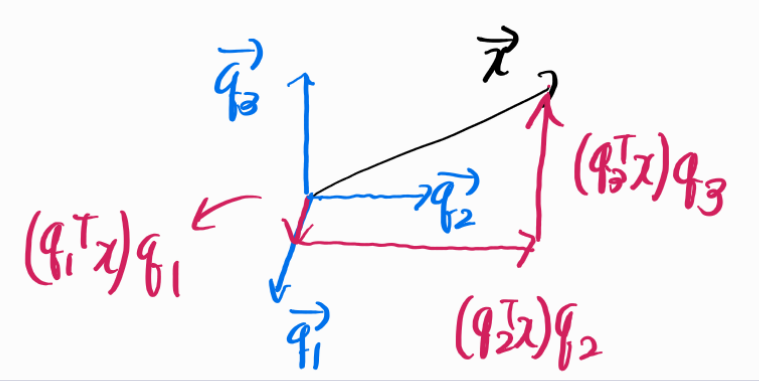 x⃗
q⃗₃
(q₃ᵀx)q₃
q⃗₂
(q₁ᵀx)q₁
q⃗₁
(q₂ᵀx)q₂